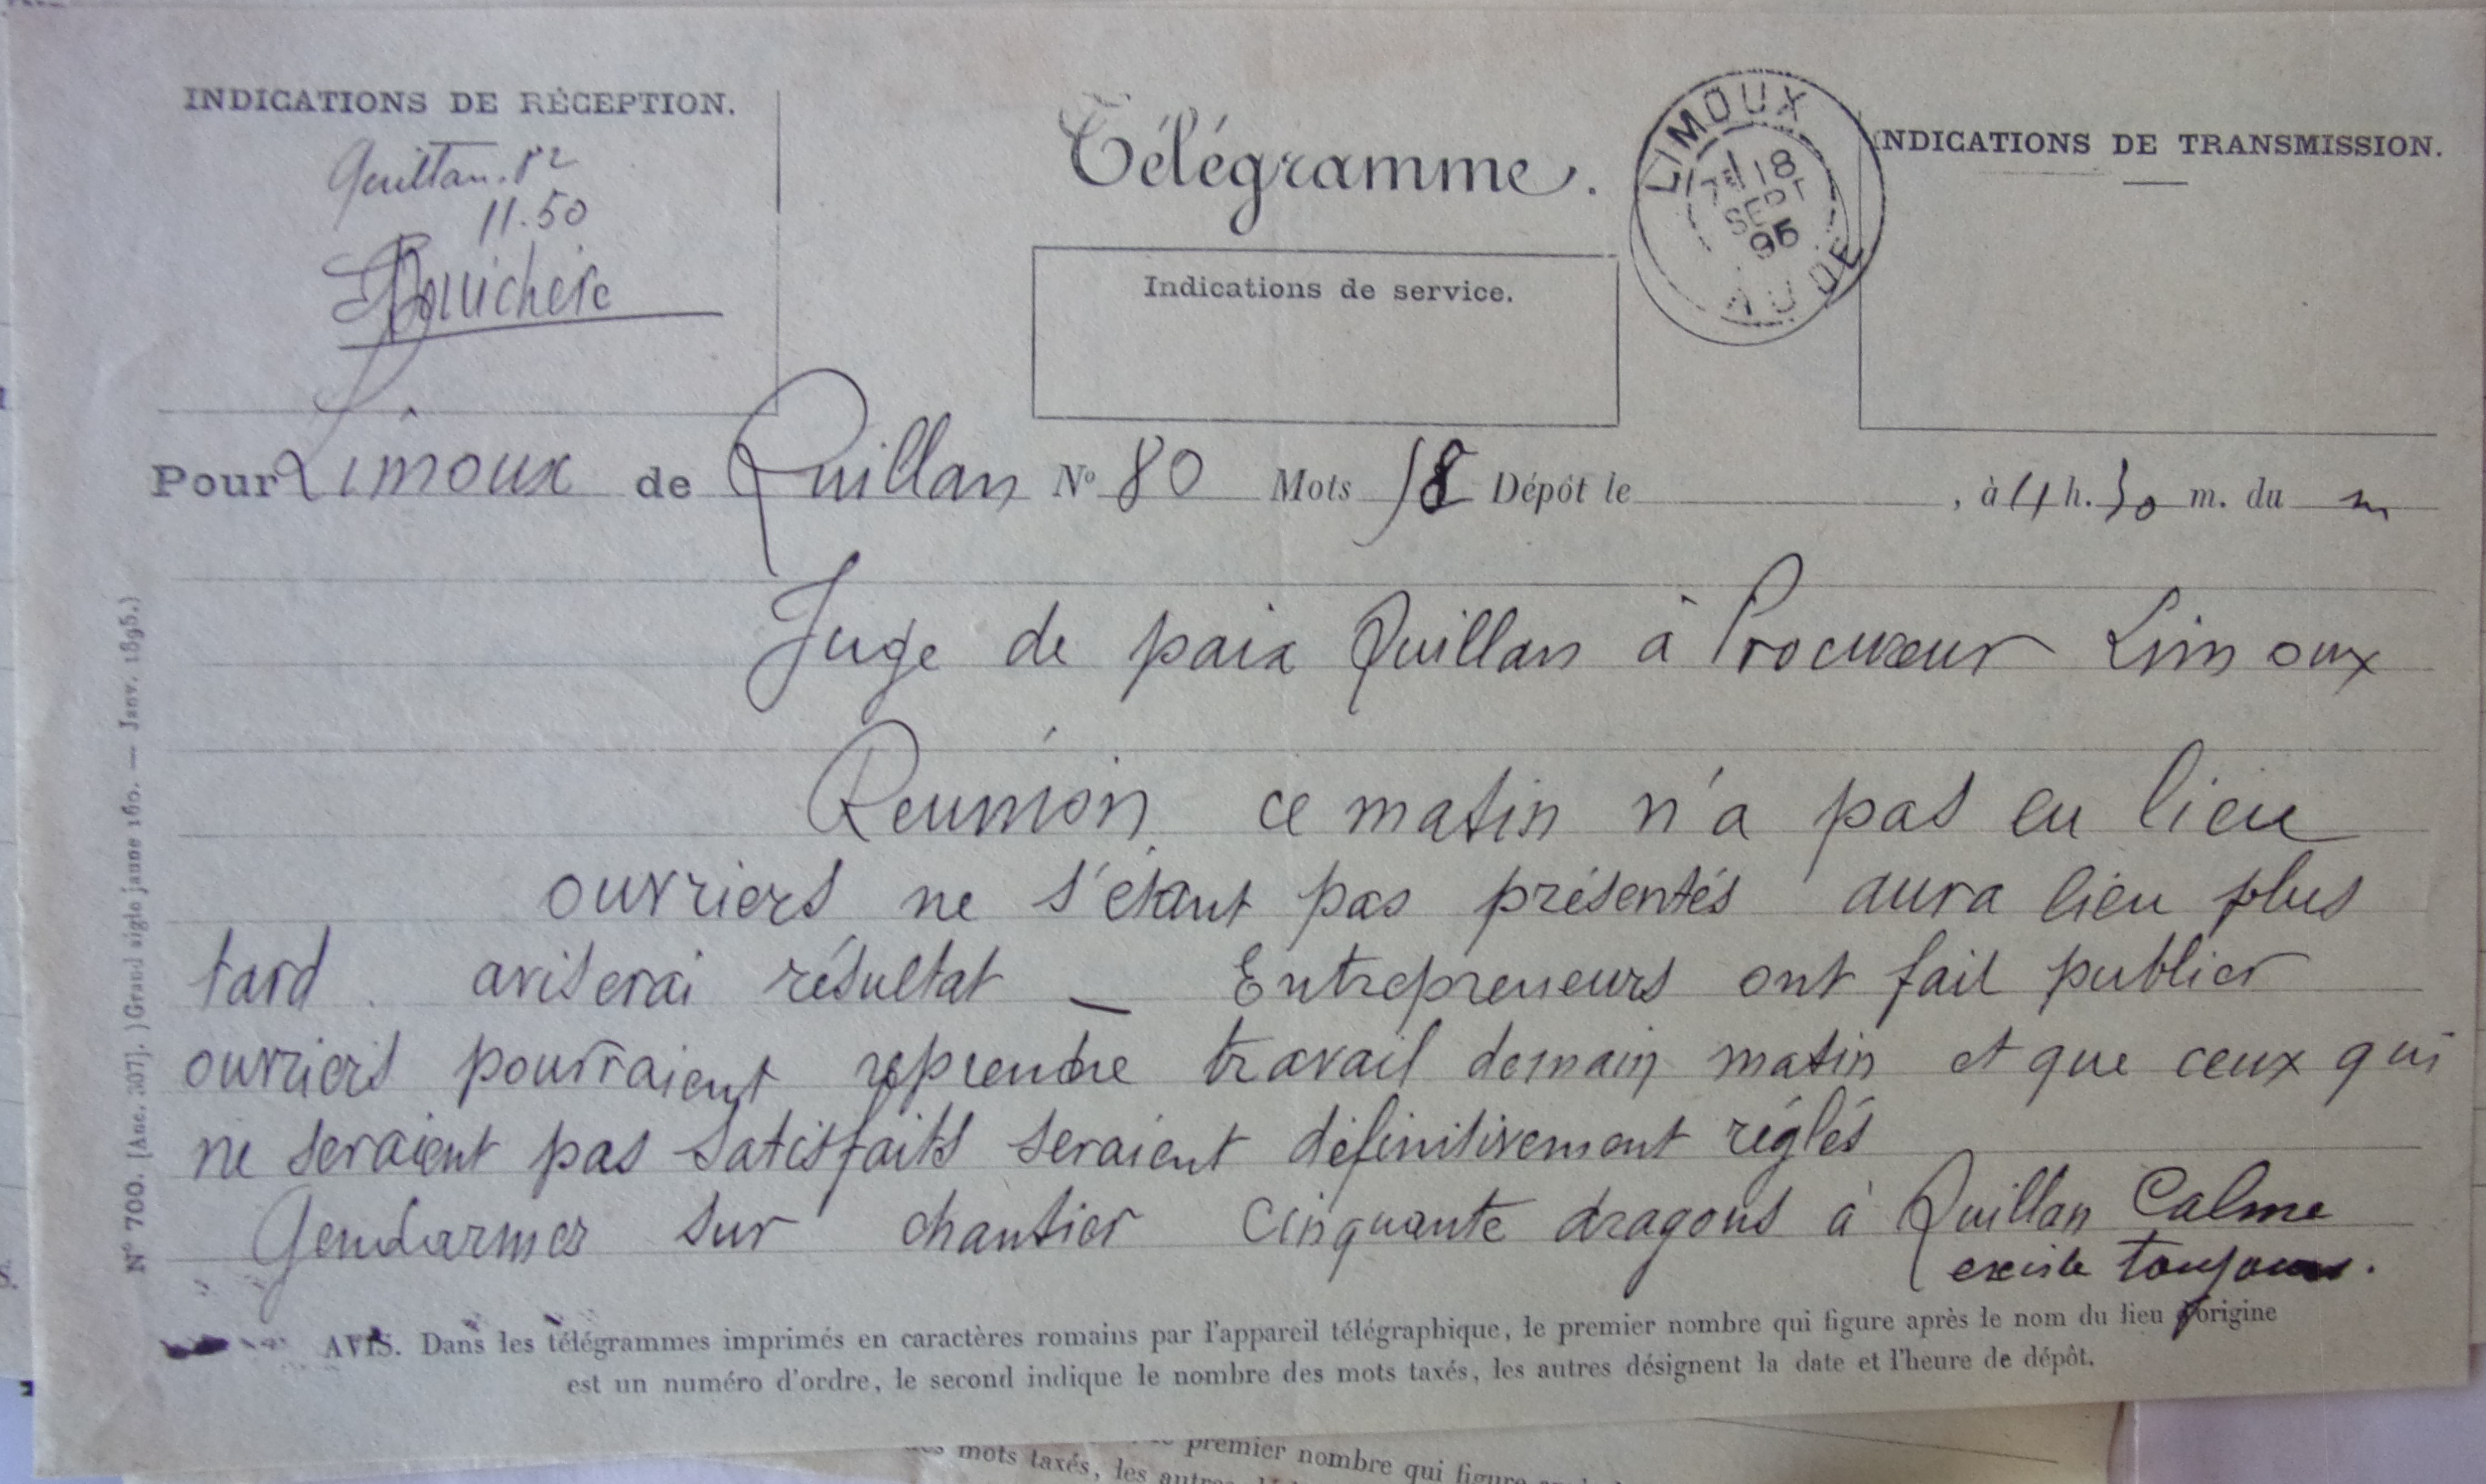 INDICATIONS DE RÉCEPTION.
82
11.50
Télégramme.
Indications de service.
LIMOUX
18
SEPT
95
AUDE
INDICATIONS DE TRANSMISSION.
Pour Limoux de Quillan N° 80 Mots 58 Dépôt le , à 11 h. 30 m. du m
Juge de paix Quillan à Procureur Limoux
Réunion ce matin n'a pas eu lieu
ouvriers ne s'étant pas présentés aura lieu plus
tard. aviserai résultat _ Entrepreneurs ont fait publier
ouvriers pourraient reprendre travail demain matin et que ceux qui
ne seraient pas satisfaits seraient définitivement réglés
Gendarmes sur chantier cinquante dragons à Quillan Calme
existe toujours.
AVIS. Dans les télégrammes imprimés en caractères romains par l'appareil télégraphique, le premier nombre qui figure après le nom du lieu d'origine
est un numéro d'ordre, le second indique le nombre des mots taxés, les autres désignent la date et l'heure de dépôt.
N° 700. [Anc. 307]. )Grand aigle jaune 160. — Janv. 1895.)
premier nombre qui figure
mots taxés, les autres